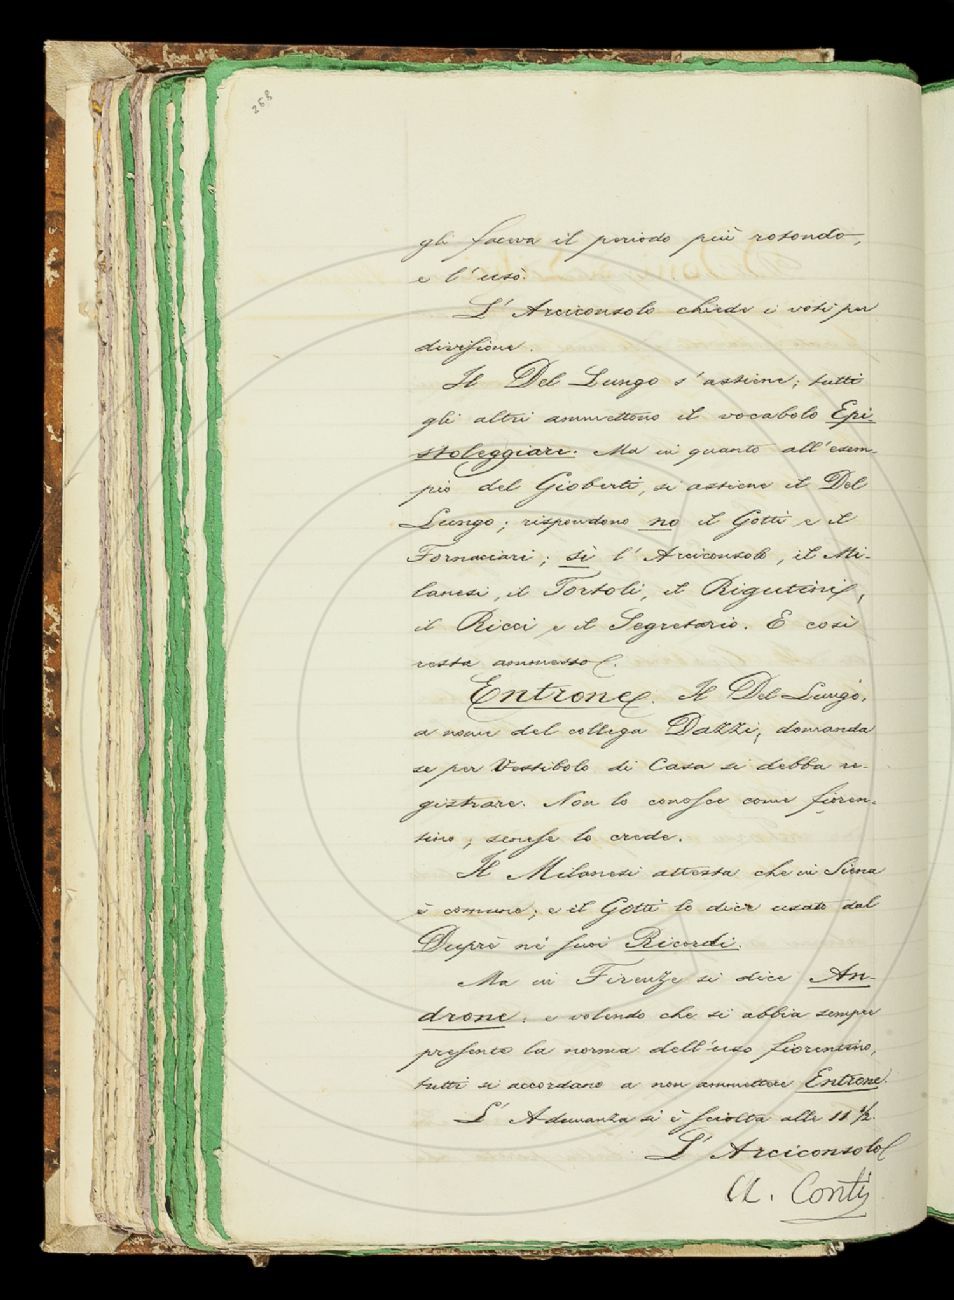 268
gli faceva il periodo più rotondo,
e l'uso.
L'Arciconsolo chiede i voti per
divisione.
Il Del Lungo s'astiene; tutti
gli altri ammettono il vocabolo Epi-
stoleggiare. Ma in quanto all'esem-
pio del Gioberti, si astiene il Del
Lungo; rispondono no il Gotti e il
Fornaciari; sì l'Arciconsolo, il Mi-
lanesi, il Tortoli, il Rigutini,
il Ricci e il Segretario. E così
resta ammesso.
Entrone. Il Del Lungo,
a nome del collega Dazzi, domanda
se per Vestibolo di Casa si debba re-
gistrare. Non lo conosce come fioren-
tino; senese lo crede.
Il Milanesi attesta che in Siena
è comune; e il Gotti lo dice usato dal
Duprè ne' suoi Ricordi.
Ma in Firenze si dice An-
drone; e volendo che si abbia sempre
presente la norma dell'uso fiorentino,
tutti si accordano a non ammettere Entrone.
L'Adunanza si è sciolta alle 11 1/2.
L'Arciconsolo
A. Conti